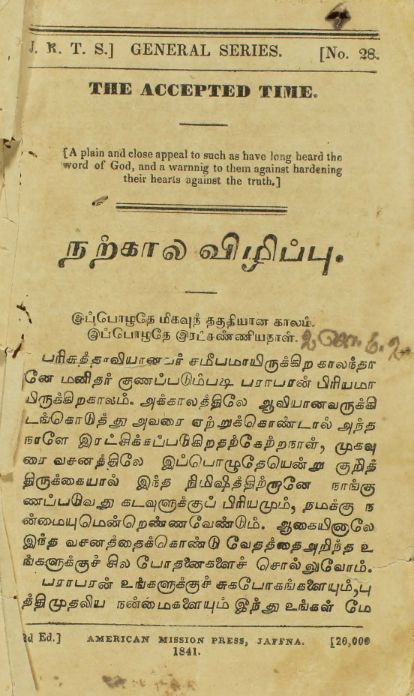 J. R. T. S.] GENERAL SERIES. [No. 28.
THE ACCEPTED TIME.
[A plain and close appeal to such as have long heard the
word of God, and a warnnig to them against hardening
their hearts against the truth.]
நற்கால விழிப்பு.
இப்பொழுதே மிகவுந் தகுதியான காலம்.
இப்பொழுதே இரட்சண்ணியநாள்.
பரிசுத்தாவியானவர் சமீபமாயிருக்கிற காலந்தா
னே மனிதர் குணப்படும்படி பராபரன் பிரியமா
யிருக்கிறகாலம். அக்காலத்திலே ஆவியானவருக்கி
டக்கொடுத்து அவரை ஏற்றுக்கொண்டால் அந்த
நாளே இரட்சிக்கப்படுகிறதற்கேற்றநாள், முகவு
ரை வசனத்திலே இப்பொழுதேயென்று குறித்
திருக்கையால் இந்த நிமிஷத்திற்றானே நாங்கு
ணப்படுவது கடவுளுக்குப் பிரியமும், நமக்கு ந
ன்மையுமென்றெண்ணவேண்டும். ஆகையினாலே
இந்த வசனத்தைக்கொண்டு வேதத்தை அறிந்த உ
ங்களுக்குச் சில போதனைகளைச் சொல்லுவோம்.
பராபரன் உங்களுக்குச் சுகபோகங்களையும், பு
த்திமுதலிய நன்மைகளையும் இந்து உங்கள் மே
2d Ed.] AMERICAN MISSION PRESS, JAFFNA. [20,000
1841.